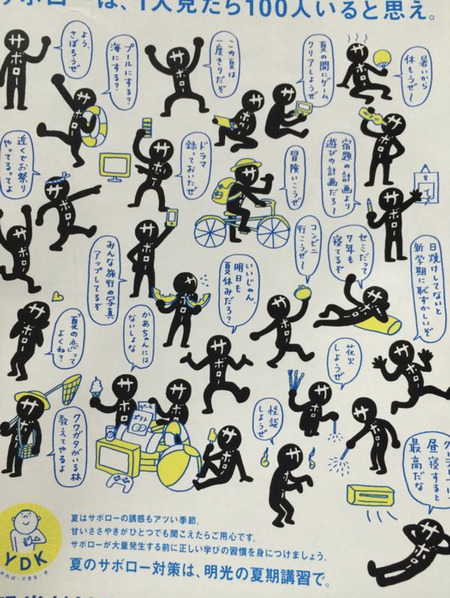 サボローは、1人見たら100人いると思え。
よう、
さぼろうぜ
プールにする？
海にする？
この夏は
一度きりだぞ
夏の間にゲーム
クリアしようぜ
暑いから
休もうぜ〜
近くでお祭り
やってるってよ
ドラマ
録っておいたぜ
冒険いこうぜ
宿題の計画より
遊びの計画だろ〜
みんな旅行の写真
アップしてるぞ
いいじゃん、
明日も
夏休みだろ？
コンビニ
行こうぜ〜
セミだって
7年も
寝てるぞ
日焼けしてないと
新学期に恥ずかしいぞ
夏の恋って
よくね？
かあちゃんには
ないしょな
花火
しようぜ
怪談
しようぜ
クワガタがいる林
教えてやるよ
昼寝すると
最高だな
サボロー
YDK
夏はサボローの誘惑もアツい季節。
甘いささやきがひとつでも聞こえたらご用心です。
サボローが大量発生する前に正しい学びの習慣を身につけましょう。
夏のサボロー対策は、明光の夏期講習で。